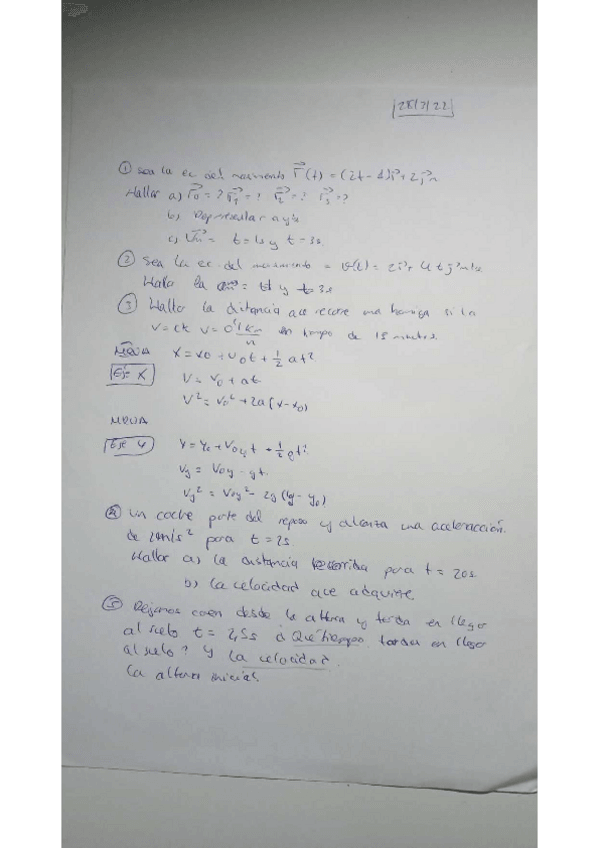 28/3/22
① Sea la ec del movimiento r⃗(t) = (2t - 1)i⃗ + 2j⃗ m
Hallar a) r⃗0 = ? r⃗1 = ? r⃗2 = ? r⃗3 = ?
b) Representar
c) V⃗m = t = 1s y t = 3s.
② Sea la ec. del movimiento = v(t) = 2i⃗ + 4tj⃗ m/s
Halla la y t = 3s
③ Halla la distancia que recorre una hormiga si la
v = cte v = 0'1 km/h en tiempo de 15 minutos.
MRUA x = x0 + v0t + 1/2 at²
Eje X v = v0 + at
v² = v0² + 2a(x - x0)
MRUA
Eje Y y = y0 + v0y t + 1/2 gt²
vy = v0y - gt.
vy² = v0y² - 2g(y - y0)
④ Un coche parte del reposo y alcanza una aceleración
de 2m/s² para t = 2s
Hallar a) la distancia recorrida para t = 20s.
b) la velocidad que adquiere
⑤ Dejamos caer desde la altura y tarda en llegar
al suelo t = ¿Qué tiempo tarda en llegar
al suelo? y la velocidad.
la altura inicial.